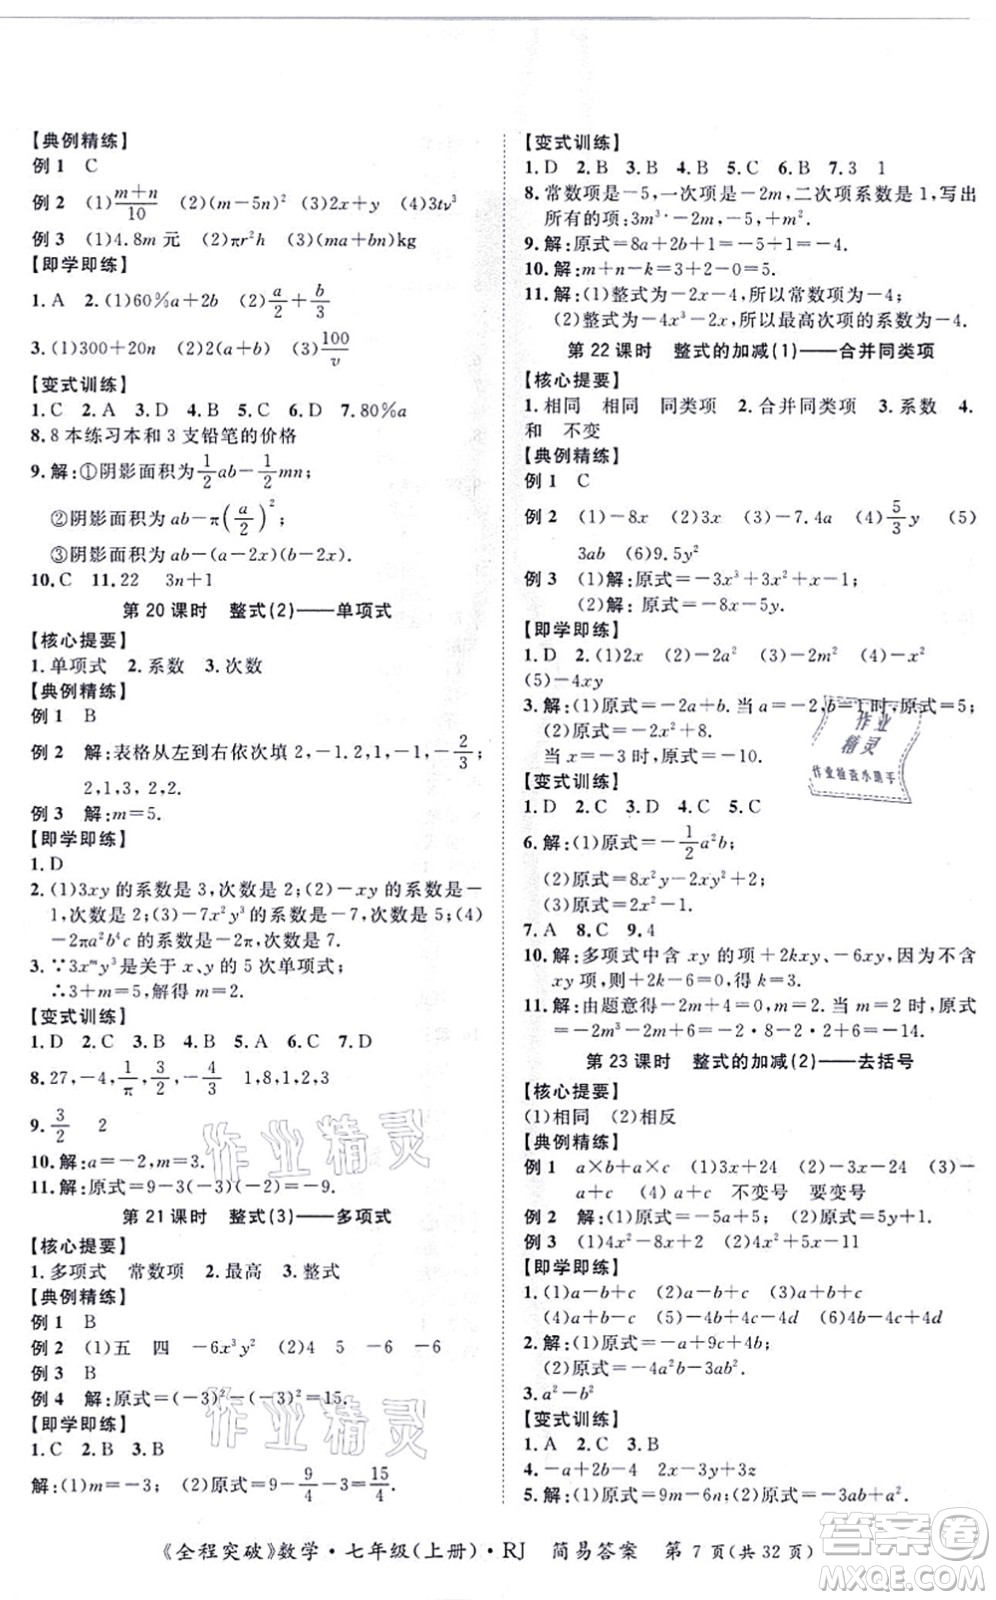 【典例精练】
例 1　C
例 2　(1)(m+n)/10　(2)(m－5n)²　(3)2x+y　(4)3tv³
例 3　(1)4.8m 元　(2)πr²h　(3)(ma+bn)kg
【即学即练】
1. A　2. (1)60%a+2b　(2)a/2+b/3
3. (1)300+20n　(2)60%x　(3)100/v
【变式训练】
1. C　2. A　3. D　4. C　5. B　6. D　7. 80%a
8. 8 本练习本和 3 支铅笔的价格
9. 解:①阴影面积为1/2ab－1/2mn;
②阴影面积为 ab－π(a/2)²;
③阴影面积为 ab－(a－2x)(b－2x).
10. C　11. 22　3n+1
第 20 课时　整式(2)——单项式
【核心提要】
1. 单项式　2. 系数　3. 次数
【典例精练】
例 1　B
例 2　解:表格从左到右依次填 2,－1.2,1,－1,－2/3;
2,1,3,2,2.
例 3　解:m=5.
【即学即练】
1. D
2. (1)3xy 的系数是 3,次数是 2;(2)－xy 的系数是－
1,次数是 2;(3)－7x²y³的系数是－7,次数是 5;(4)
－2πa²b⁴c 的系数是－2π,次数是 7.
3. ∵3xᵐy³是关于 x、y 的 5 次单项式;
∴3+m=5,解得 m=2.
【变式训练】
1. D　2. C　3. C　4. D　5. B　6. C　7. D
8. 27,－4,1/π,3/2,－4/3　1,8,1,2,3
9. 3/2　2
10. 解:a=－2,m=3.
11. 解:原式=9－3(－3)(－2)=－9.
第 21 课时　整式(3)——多项式
【核心提要】
1. 多项式　常数项　2. 最高　3. 整式
【典例精练】
例 1　B
例 2　(1)五　四　－6x³y²　(2)4　5　－6　－6
例 3　B
例 4　解:原式=(－3)²－2(－3)²=15.
【即学即练】
1. C　2. B　3. B
解:(1)m=－3;　(2)原式=9－9/4－3=15/4.
【变式训练】
1. D　2. B　3. B　4. A　5. D　6. B　7. 3　1
8. 常数项是－5,一次项是－2m,二次项系数是 1,写出
所有的项:3m³·－2m,－5,+m².
9. 解:原式=8a+2b+1=－5+1=－4.
10. 解:m+n－k=3+2－0=5.
11. 解:(1)整式为－2x－4,所以常数项为－4;
(2)整式为－4x³－2x,所以最高次项的系数为－4.
第 22 课时　整式的加减(1)——合并同类项
【核心提要】
1. 相同　相同　同类项　2. 合并同类项　3. 系数　4.
和　不变
【典例精练】
例 1　C
例 2　(1)－8x　(2)3x　(3)－7.4a　(4)5/3y　(5)
3ab　(6)9.5y²
例 3　(1)解:原式=－3x³+3x²+1;
(2)解:原式=－8x－5y.
【即学即练】
1. D　2. (1)2x　(2)－2a²　(3)－2m²　(4)－x²
(5)－4xy
3. 解:(1)原式=－2a+b. 当 a=－2,b=1 时,原式=5;
(2)原式=－2x－6.
当 x=－3 时,原式=0.
【变式训练】
1. D　2. C　3. D　4. C　5. D
6. 解:(1)原式=－1/2a²b;
(2)原式=0.8a²b;
(3)原式=－x²－1.
7. A　8. C　9. 4
10. 解:多项式中含 xy 的项为+2kxy,－6xy,不含
xy 项,则+2k－6=0,k=3.
11. 解:由题意得－2m+4=0,m=2. 当 m=2 时,原式
=－2m³－2m+6=－2·8－2·2+6=－14.
第 23 课时　整式的加减(2)——去括号
【核心提要】
(1)相同　(2)相反
【典例精练】
例 1　a×b+a×c　(1)3x+24　(2)－3x－24　(3)－
3x+24　(4)a－b+c　不变号　要变号
例 2　解:(1)原式=－5a+5;　(2)原式=5y+1.
例 3　(1)4x²－8x+2　(2)4x²+5x－11
【即学即练】
1. (1)a－b+c　(2)a－b+c　(3)－a－b+c
(4)a+b+c　(5)－4b+4c－4d　(6)－4b－4c+4d
2. 解:(1)原式=－a+9c+4b;
(2)原式=2a²b－a²b－4b－7ab².
3. a²－b²
【变式训练】
1. A　2. C　3. B
4. －a+b－c　2x－3y+3z
5. 解:(1)原式=9m－6n;(2)原式=－3ab+a².
《全程突破》数学·七年级(上册)·RJ　简易答案　第 7 页(共 32 页)
作业
精灵
作业检查小助手
作业精灵
作业精灵
答案圈
MXQE.COM